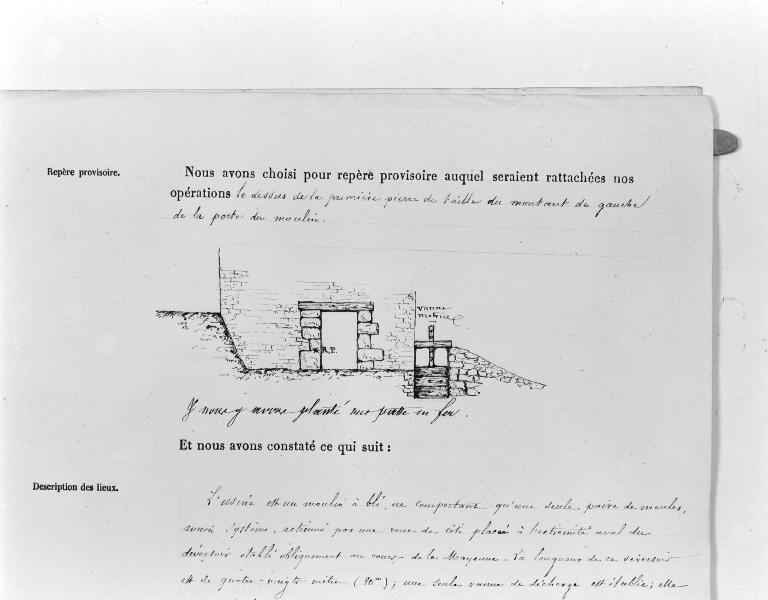 Repère provisoire.
Nous avons choisi pour repère provisoire auquel seraient rattachées nos
opérations le dessus de la première pierre de taille du montant de gauche
de la porte du moulin.
Vanne
motrice
R.P.
J nous y avons planté une patte en fer.
Et nous avons constaté ce qui suit :
Description des lieux.
L'usine est un moulin à blé, ne comportant qu'une seule paire de meules,
ancien système, actionné par une roue de côté placée à l'extrémité aval du
déversoir établi obliquement au cours de la Mayenne. La longueur de ce déversoir
est de quatre-vingts mètres (80m) ; une seule vanne de décharge est établie ; elle